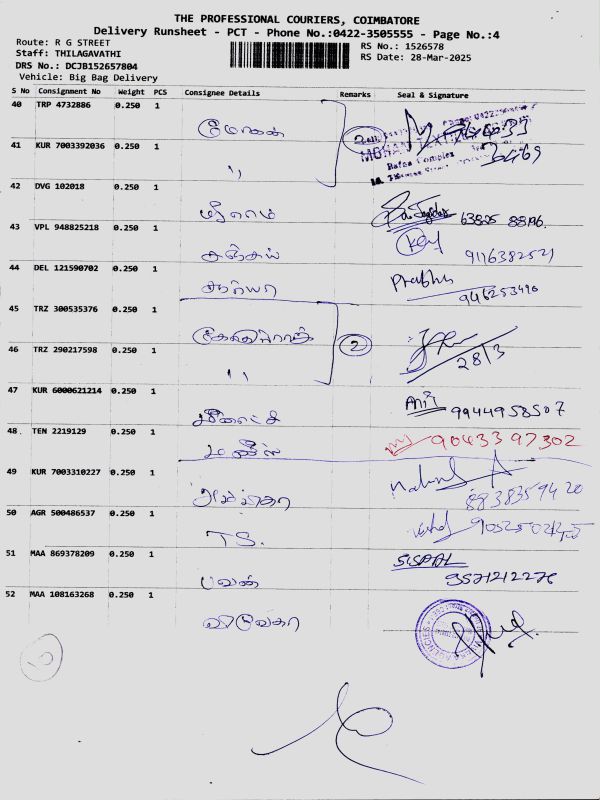 THE PROFESSIONAL COURIERS, COIMBATORE
Delivery Runsheet - PCT - Phone No.:0422-3505555 - Page No.:4
Route: R G STREET
Staff: THILAGAVATHI
DRS No.: DCJB152657804
Vehicle: Big Bag Delivery
RS No.: 1526578
RS Date: 28-Mar-2025
S No Consignment No Weight PCS Consignee Details Remarks Seal & Signature
40 TRP 4732886 0.250 1
மோகன்
41 KUR 7003392036 0.250 1
Rafna Complex
"
42 DVG 102018 0.250 1
ஸ்ரீராம் 63825
43 VPL 948825218 0.250 1
சஞ்சய் 9116382521
44 DEL 121590702 0.250 1
சூர்யா Prabhu
946253490
45 TRZ 300535376 0.250 1
2
46 TRZ 290217598 0.250 1
" 28/3
47 KUR 6000621214 0.250 1
9944958507
48 TEN 2219129 0.250 1
மணிஸ் 9043397302
49 KUR 7003310227 0.250 1
8838359420
50 AGR 500486537 0.250 1
T.S.
51 MAA 869378209 0.250 1
பவன் 9571212276
52 MAA 108163268 0.250 1
விவேகா